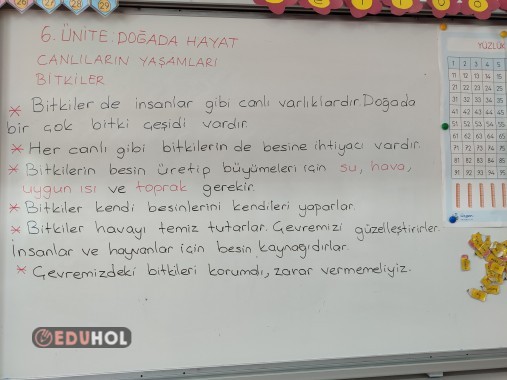 26 27 28 29
6. ÜNİTE: DOĞADA HAYAT
CANLILARIN YAŞAMLARI
BİTKİLER
* Bitkiler de insanlar gibi canlı varlıklardır. Doğada
bir çok bitki çeşidi vardır.
* Her canlı gibi bitkilerin de besine ihtiyacı vardır.
* Bitkilerin besin üretip büyümeleri için su, hava,
uygun ısı ve toprak gerekir.
* Bitkiler kendi besinlerini kendileri yaparlar.
* Bitkiler havayı temiz tutarlar. Çevremizi güzelleştirirler.
İnsanlar ve hayvanlar için besin kaynağıdırlar.
* Çevremizdeki bitkileri korumdı, zarar vermemeliyiz.
YÜZLÜK
1 2 3 4 5
11 12 13 14 15
21 22 23 24 25
31 32 33 34 35
41 42 43 44 45
51 52 53 54 55
61 62 63 64 65
71 72 73 74 75
81 82 83 84 85
91 92 93 94 95
EDUHOL